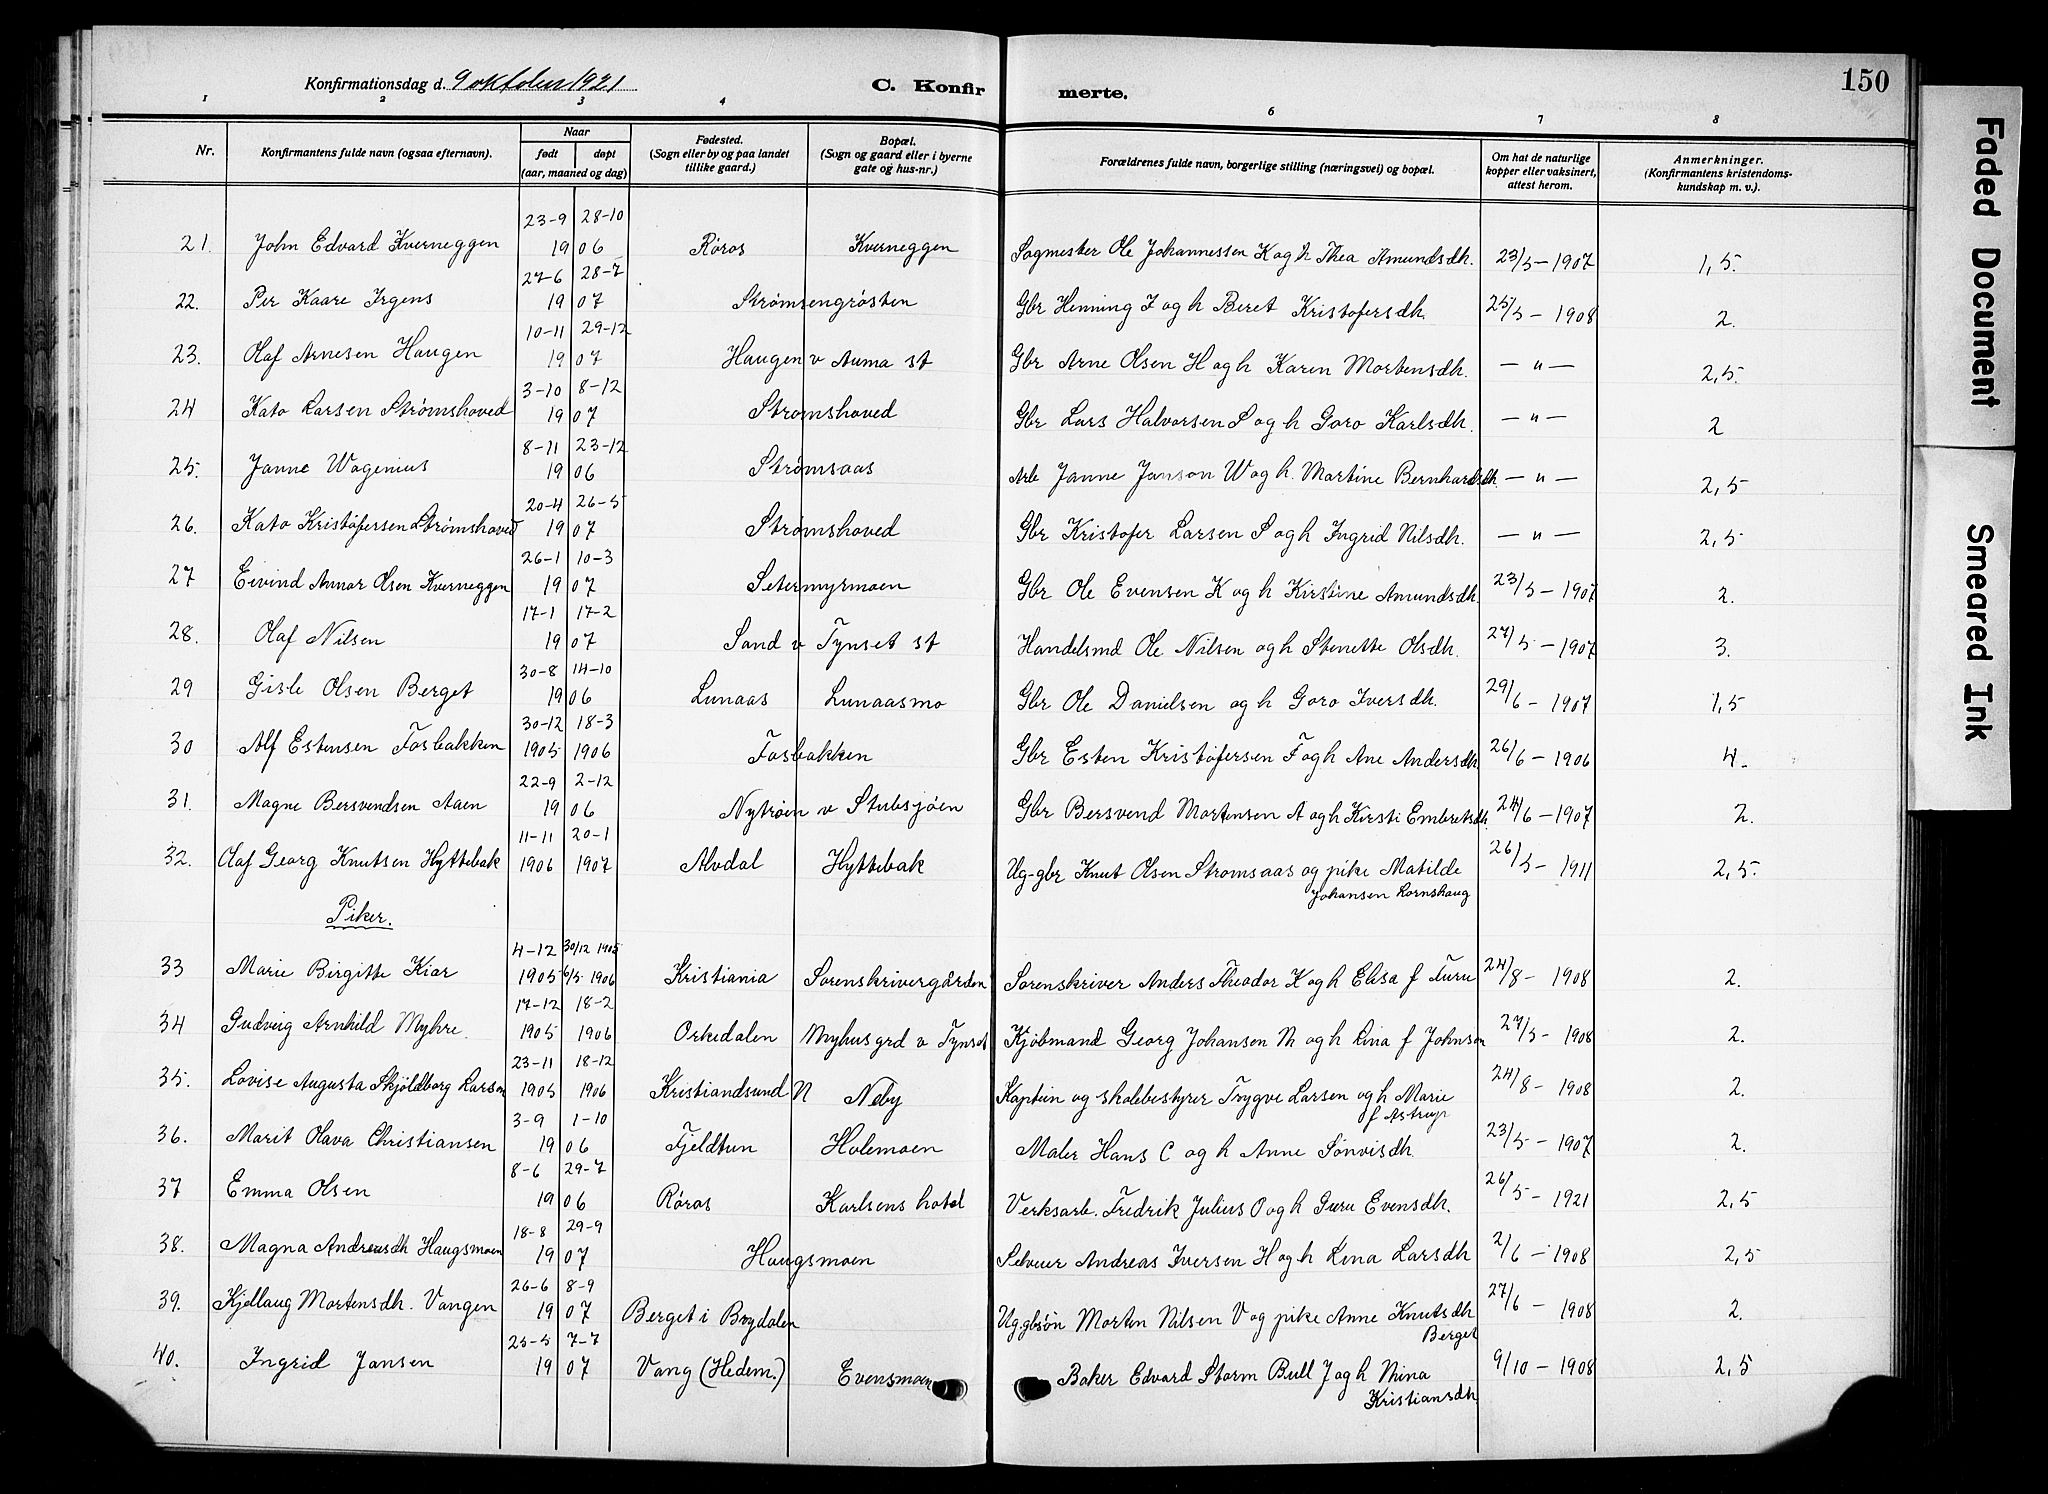 150
Konfirmationsdag d. 9 oktober 1921
C. Konfirmerte.
1 2 3 4 6 7 8
Nr.
Konfirmantens fulde navn (ogsaa efternavn).
Naar
født døpt
(aar, maaned og dag)
Fødested.
(Sogn eller by og paa landet tillike gaard.)
Bopæl.
(Sogn og gaard eller i byerne gate og hus-nr.)
Forældrenes fulde navn, borgerlige stilling (næringsvei) og bopæl.
Om hat de naturlige kopper eller vaksinert, attest herom.
Anmerkninger.
(Konfirmantens kristendoms-kundskap m. v.).
21. John Edvard Kverneggen 23-9 28-10 1906 Røros Kverneggen Sagmester Ole Johannessen K og h Thea Amundsdh. 23/5-1907 1,5.
22. Per Kaare Irgens 27-6 28-7 1907 Strømsengrøsten Gbr Henning I og h Beret Kristofersdh. 25/5-1908 2.
23. Olaf Arnesen Haugen 10-11 29-12 1907 Haugen v Auma st Gbr Arne Olsen H og h Karen Mortensdh. -"- 2,5.
24 Kato Larsen Strømshoved 3-10 8-12 1907 Strømshoved Gbr Lars Halvorsen S og h Goro Karlsdh. -"- 2
25. Janne Wagenius 8-11 23-12 1906 Strømsaas Arb Janne Janson W og h. Martine Bernhardsdh. -"- 2,5
26. Kato Kristofersen Strømshoved 20-4 26-5 1907 Strømshoved Gbr Kristofer Larsen S og h Ingrid Nilsdh. -"- 2,5
27 Eivind Annar Olsen Kverneggen 26-1 10-3 1907 Setermyrmoen Gbr Ole Evensen K og h Kirstine Amundsdh. 23/5-1907 2.
28. Olaf Nilsen 17-1 17-2 1907 Sand v Tynset st Handelsmd Ole Nilsen og h Stenette Olsdh. 27/5-1907 3.
29 Gisle Olsen Berget 30-8 14-10 1906 Lunaas Lunaasmo Gbr Ole Danielsen og h Goro Iversdh. 29/6-1907 1,5
30 Alf Estensen Fosbakken 30-12 1905 18-3 1906 Fosbakken Gbr Esten Kristofersen F og h Ane Andersdh. 26/6-1906 4.
31. Magne Bersvendsen Aaen 22-9 2-12 1906 Nytrøen v Stubsjøen Gbr Bersvend Mortensen A og h Kirsti Embretsdh. 24/6-1907 2.
32. Olaf Georg Knutsen Hyttebak 11-11 1906 20-1 1907 Alvdal Hyttebak Ug-gbr Knut Olsen Strømsaas og pike Matilde Johansen Kornshaug 26/5-1911 2,5.
Piker.
33 Marie Birgitte Kiær 4-12 1905 30/12 1905 6/5 1906 Kristiania Sorenskrivergården Sorenskriver Anders Theodor K og h Elisa f Furu 24/8-1908 2.
34 Gudveig Arnhild Myhre. 17-12 1905 18-2 1906 Orkedalen Myhusgrd v Tynset Kjøbmand Georg Johansen M og h Lina f Johnsen 27/5-1908 2.
35. Lovise Augusta Skjöldborg Larsen 23-11 1905 18-12 1906 Kristiandsund N Neby Kaptein og skolebestyrer Trygve Larsen og h Marie f Astrup 24/8-1908 2.
36. Marit Olava Christiansen 3-9 1-10 1906 Fjeldtun Holemoen Maler Hans C og h Anne Sønvisdh. 23/5-1907 2.
37 Emma Olsen 8-6 29-7 1906 Røros Karlsens hotel Verksarb. Fredrik Julius O og h Guru Evensdh. 26/5-1921 2,5
38. Magna Andreasdh Haugsmoen 18-8 29-9 1907 Haugsmoen Selveier Andreas Iversen H og h Lina Larsdh 2/6-1908 2,5
39. Kjellaug Mortensdh. Vangen 26-6 8-9 1907 Berget i Brydalen Ug gbsøn Morten Nilsen V og pike Anne Knutsdh Berget 27/6-1908 2.
40. Ingrid Jansen 25-5 7-7 1907 Vang (Hedem.) Evensmoen Baker Edvard Storm Bull J og h Mina Kristiansdh. 9/10-1908 2,5
Faded Document
Smeared Ink